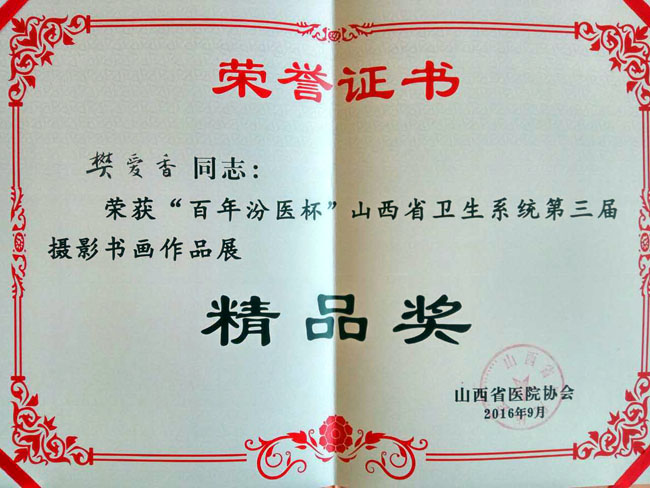 荣誉证书
樊爱香 同志：
荣获“百年汾医杯”山西省卫生系统第三届
摄影书画作品展
精品奖
山西省医院协会
2016年9月
山西省